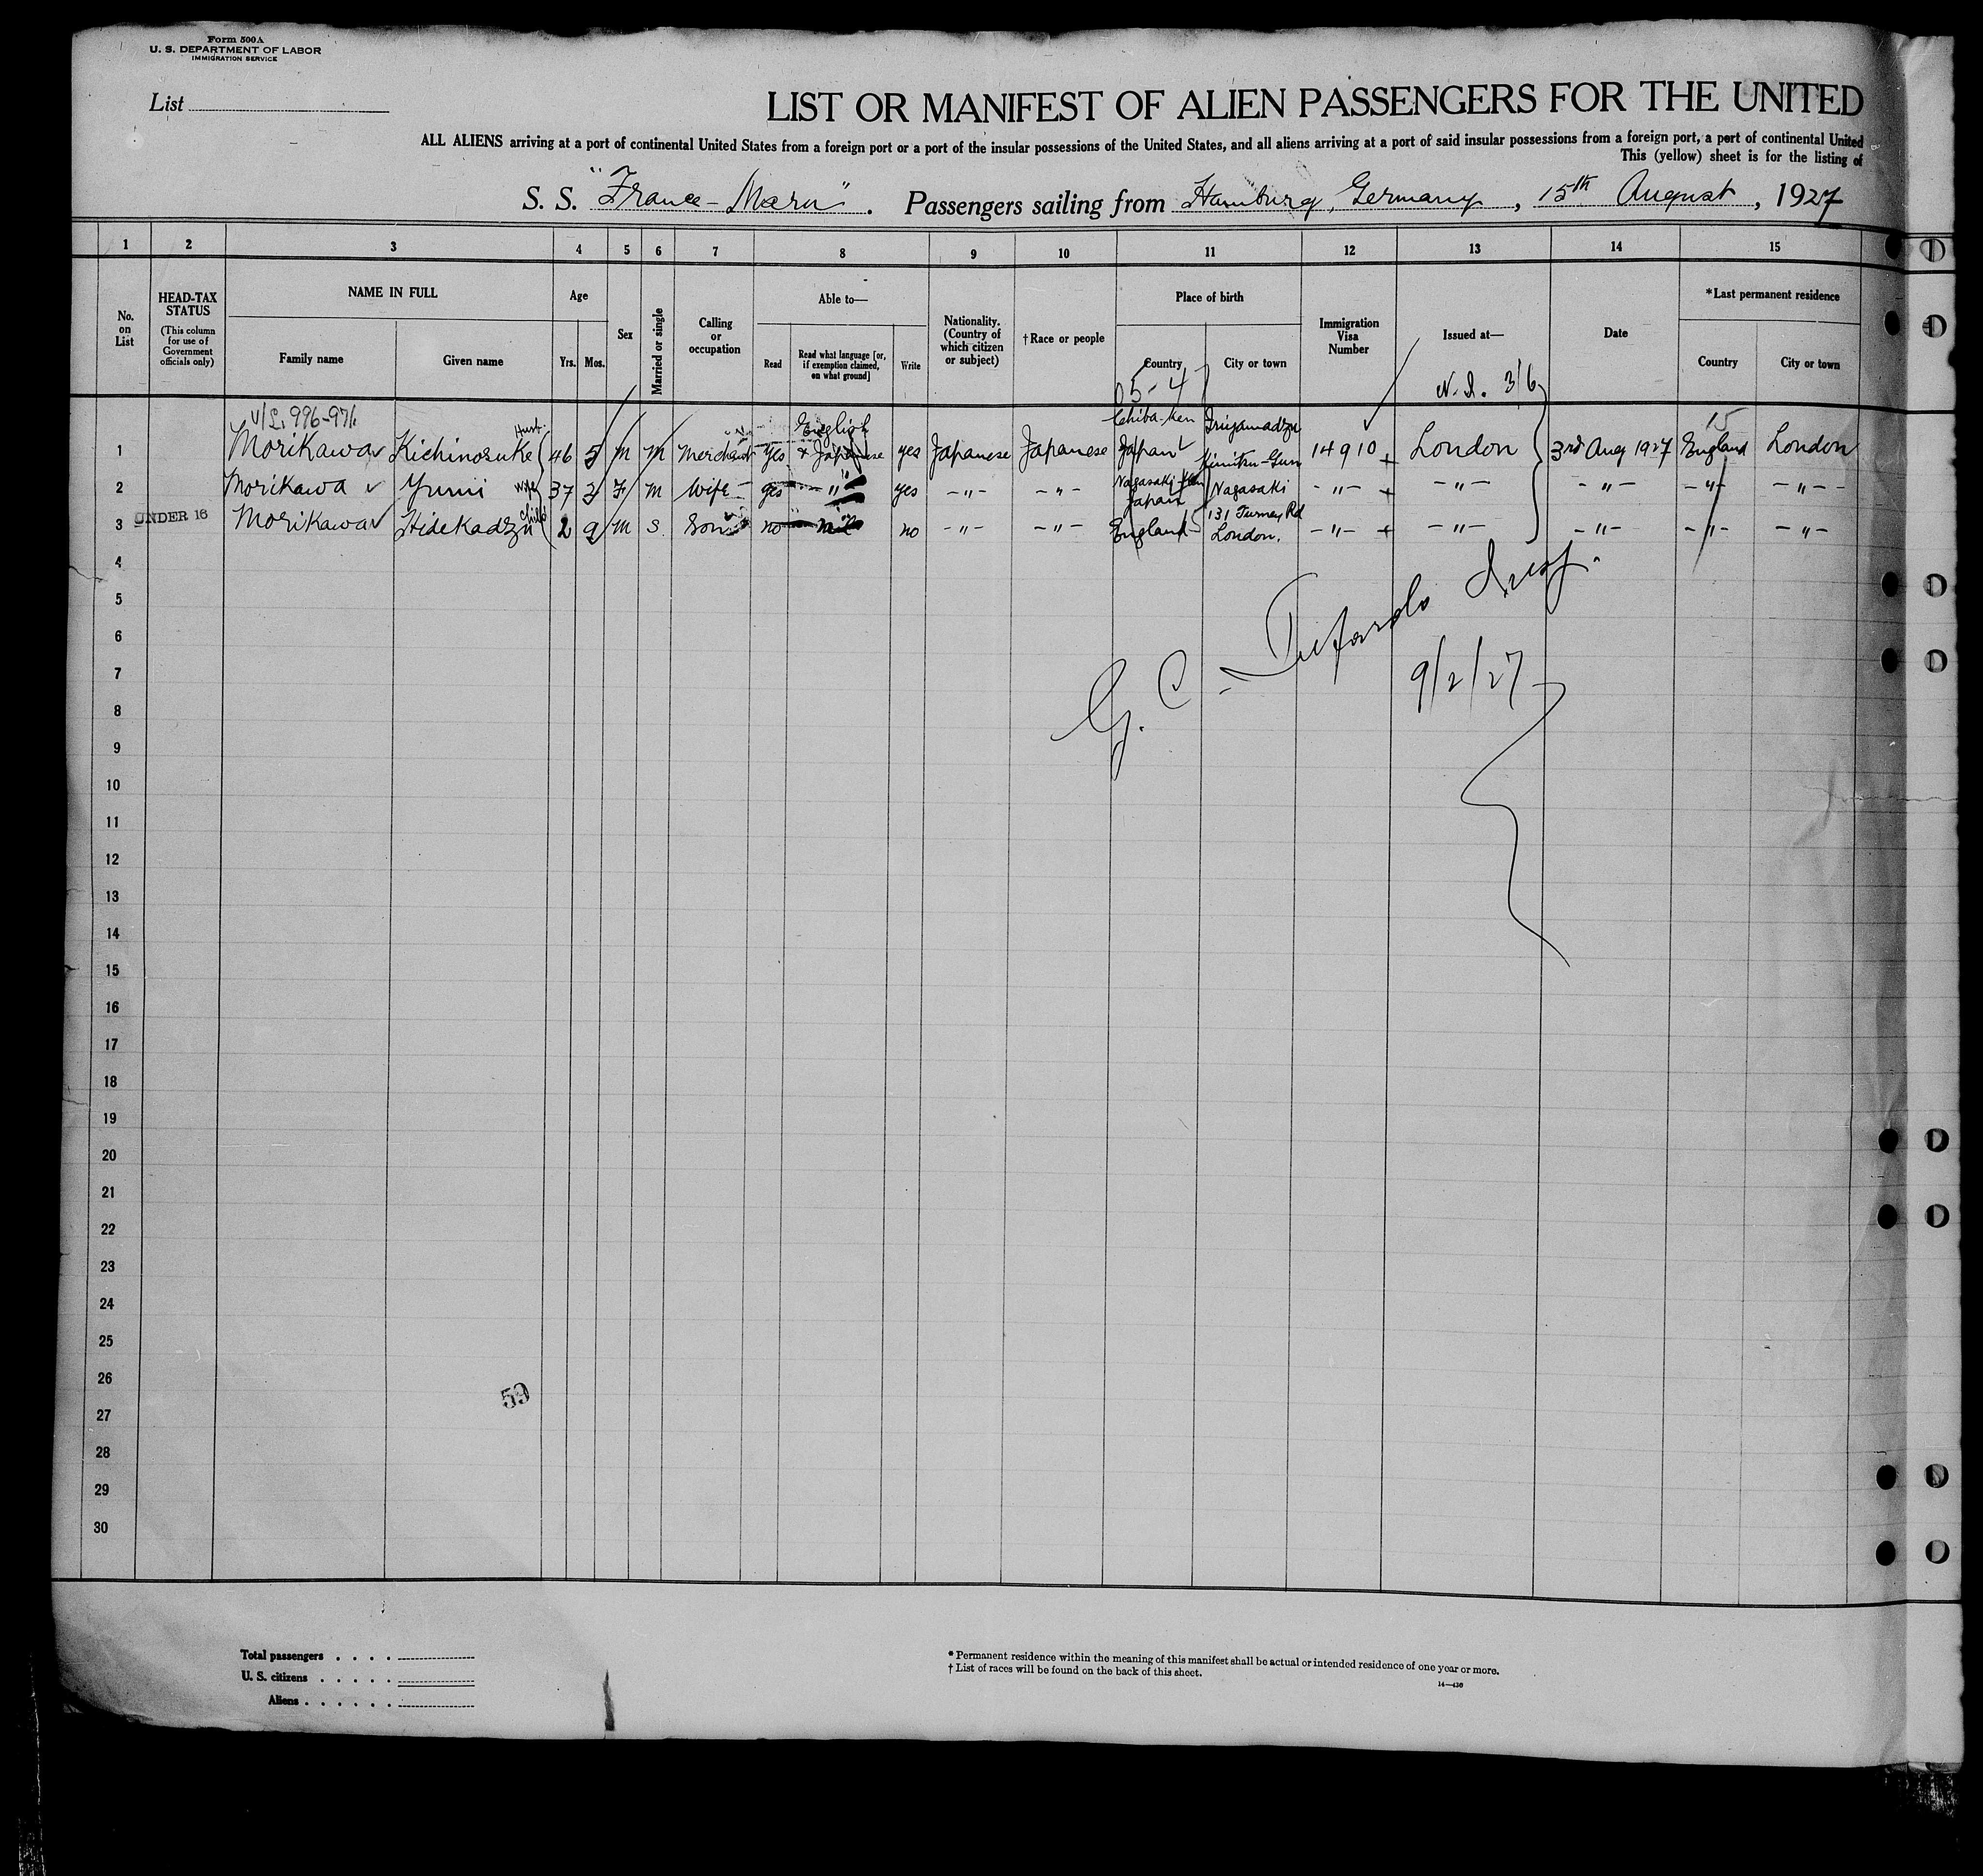 Form 500A
U. S. DEPARTMENT OF LABOR
IMMIGRATION SERVICE
List
LIST OR MANIFEST OF ALIEN PASSENGERS FOR THE UNITED
ALL ALIENS arriving at a port of continental United States from a foreign port or a port of the insular possessions of the United States, and all aliens arriving at a port of said insular possessions from a foreign port, a port of continental United
This (yellow) sheet is for the listing of
S. S. "France-Maru". Passengers sailing from Hamburg, Germany, 15th August, 1927
1 2 3 4 5 6 7 8 9 10 11 12 13 14 15
No. on List
HEAD-TAX STATUS
(This column for use of Government officials only)
NAME IN FULL
Family name
Given name
Age
Yrs. Mos.
Sex
Married or single
Calling or occupation
Able to—
Read
Read what language [or, if exemption claimed, on what ground]
Write
Nationality. (Country of which citizen or subject)
†Race or people
Place of birth
Country
City or town
Immigration Visa Number
Issued at—
Date
*Last permanent residence
Country
City or town
05-4
N.I. 3/6
996-971
Hust.
English
Chiba-Ken
15
1 Morikawa Kichinosuke 46 5 M M Merchant yes & Japanese yes Japanese Japanese Japan Kimitsu-Gun 14910 London 3rd Aug 1927 England London
Nagasaki-Ken
2 Morikawa Yumi wife 37 3 F M Wife yes " yes -"- -"- Japan Nagasaki -"- -"- -"- -"- -"-
131 Turney Rd
UNDER 16
3 Morikawa Hidekadzu child 2 9 M S. Son no no -"- -"- England London. -"- -"- -"- -"- -"-
4
5
6
G. C.
Insp.
7
9/2/27
8
9
10
11
12
13
14
15
16
17
18
19
20
21
22
23
24
25
26
59
27
28
29
30
Total passengers
U. S. citizens
Aliens
* Permanent residence within the meaning of this manifest shall be actual or intended residence of one year or more.
† List of races will be found on the back of this sheet.
14—436